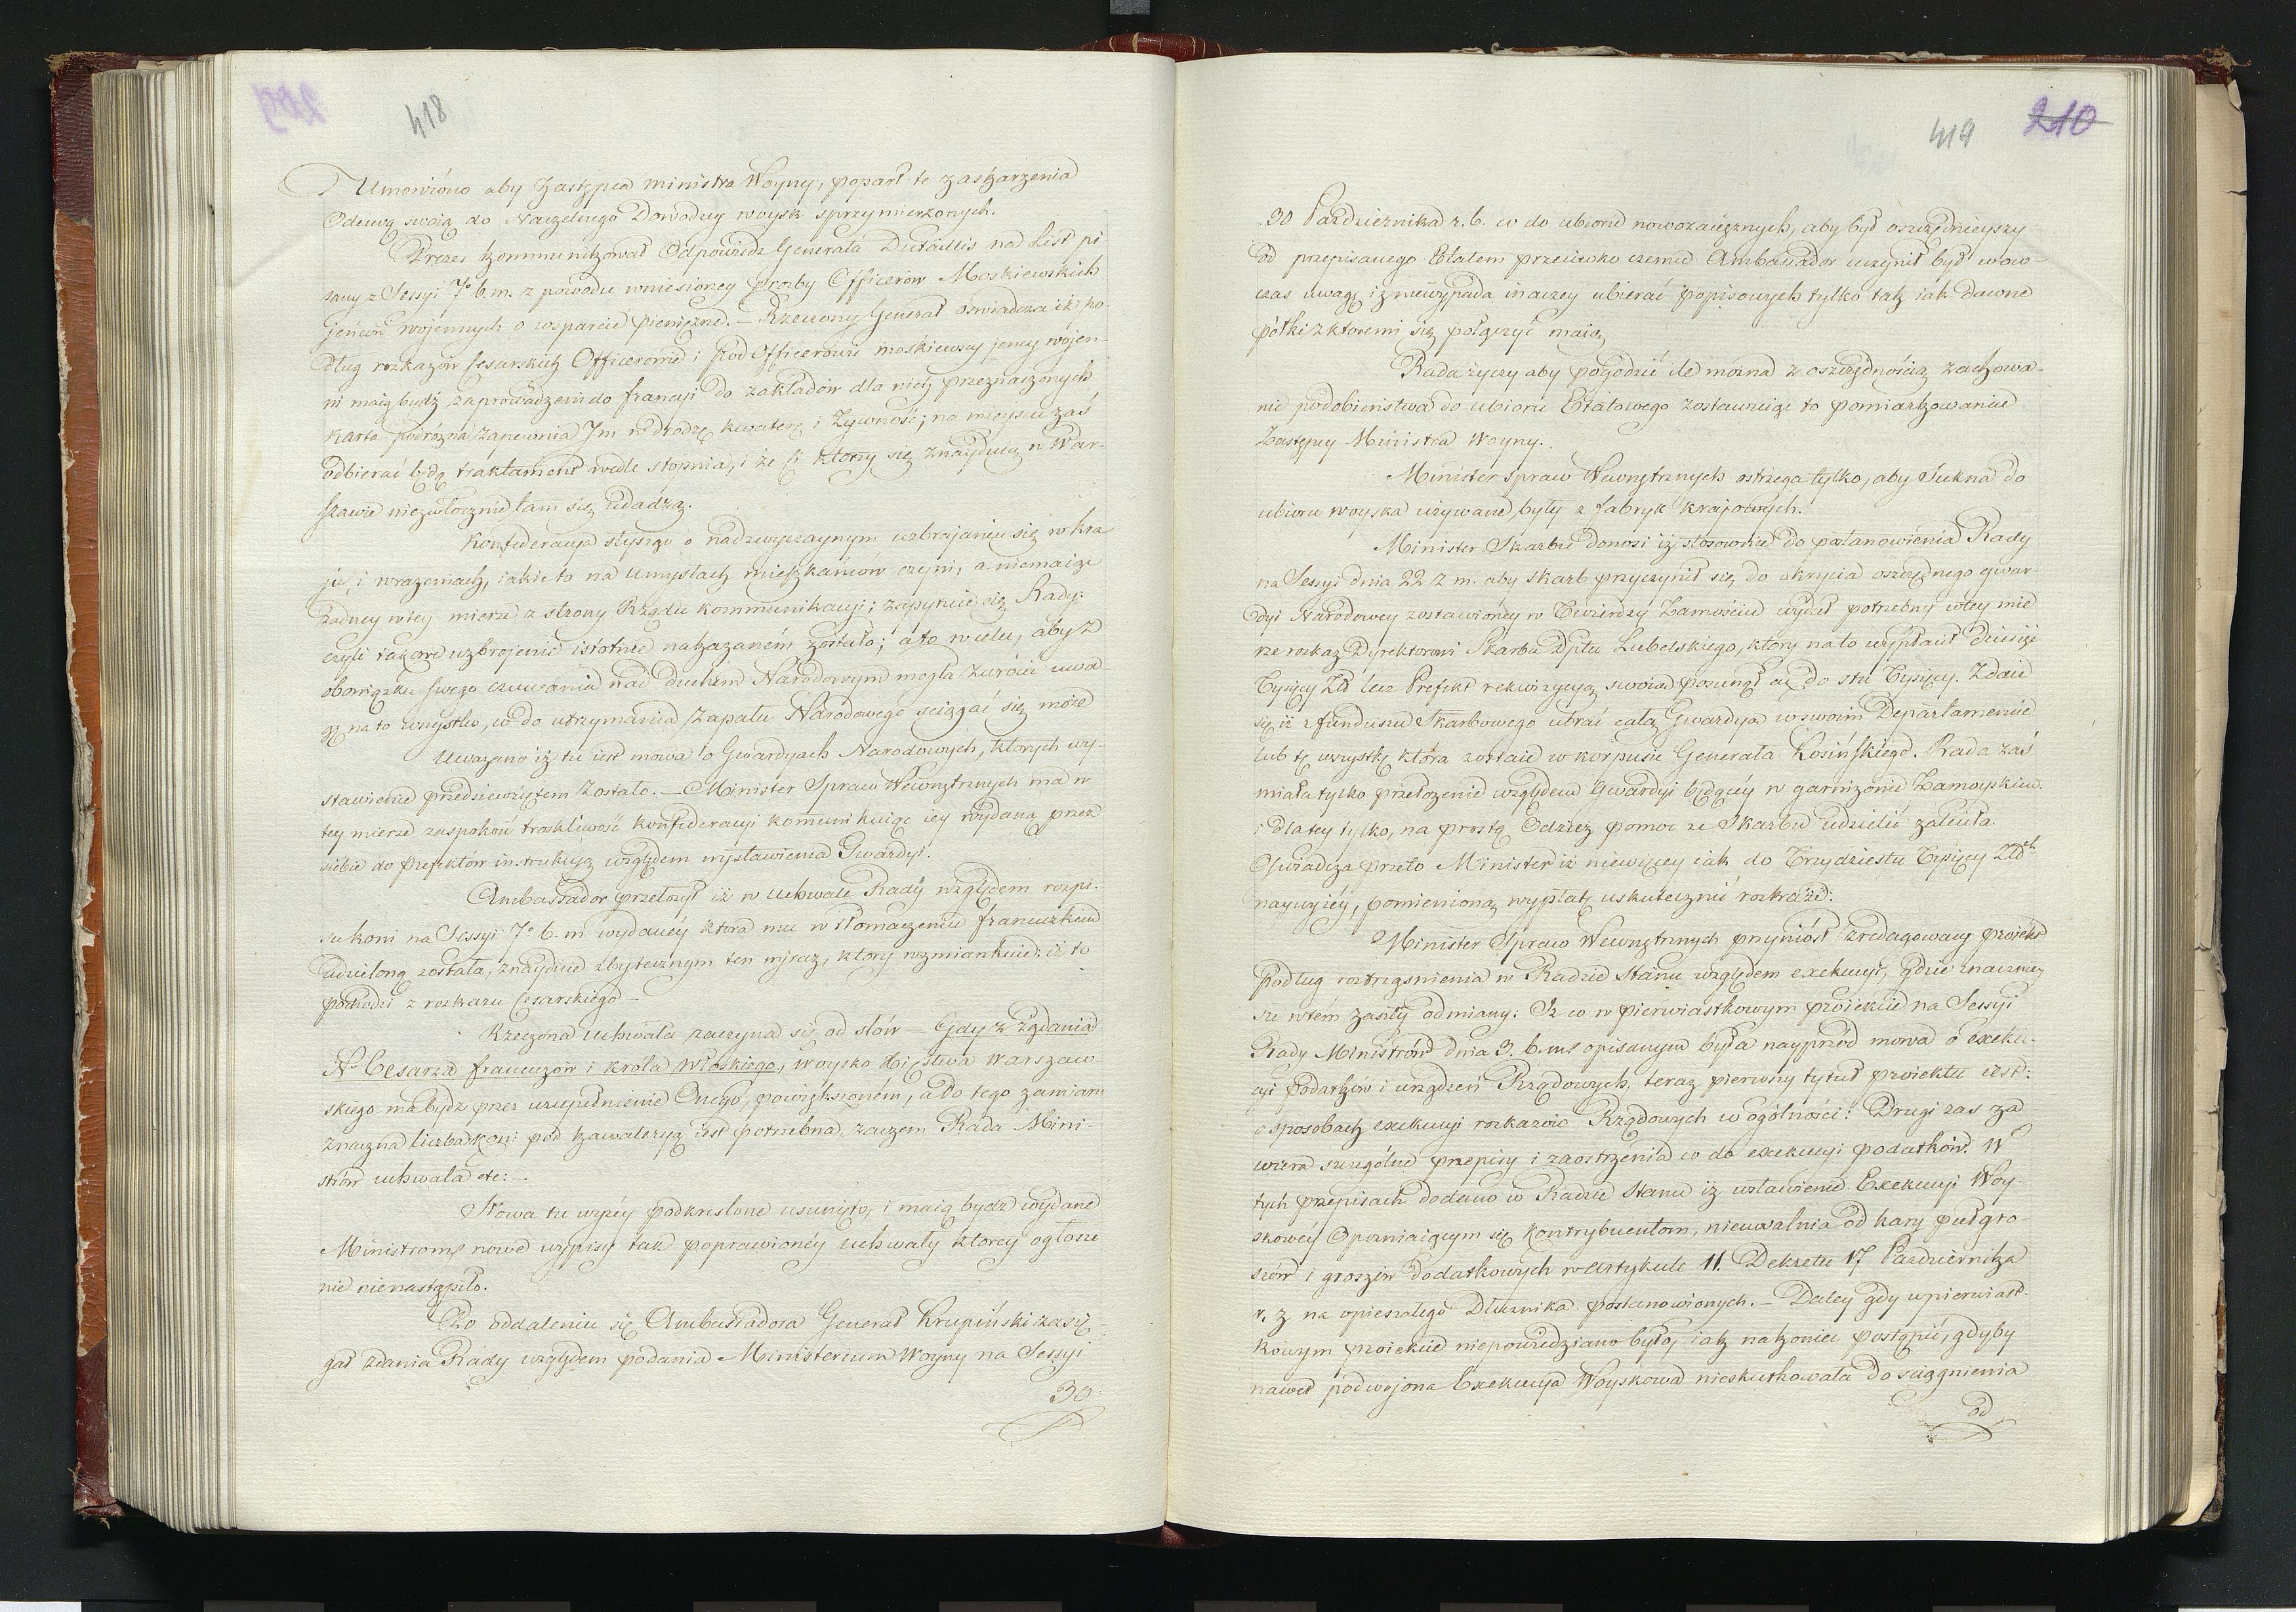 418
Umowiono aby Zastępca ministra Woyny, poparł te zaskarzenia
Odezwą swoią do Naczelnego Dowodzcy woysk sprzymierzonych.
Prezes kommunikował Odpowiedz Generała Dutaillis na List pi
sany z Sessyi 7º b. m. z powodu wniesioney prozby Officerów Moskiewskich
jeńców wojennych o wsparcie pieniężne. — Rzeczony Generał oswiadcza iż po-
dług rozkazów Cesarskich Officerowie i Pod Officerowie moskiewscy jeńcy wojen-
ni maią bydź zaprowadzeni do francyi do zakładów dla nich przeznaczonych,
karta podróżna zapewnia Im w drodze kwaterę i żywność; na mieyscu zaś
odbierać będą traktament wedle stopnia, i że Ci którzy się znayduią w War-
szawie niezwłocznie tam się udadzą.
Konfederacya słysząc o nadzwyczaynym uzbrajaniu się w kra
ju, i wrażeniach, iakie to na umysłach mieszkańców czyni, a niemaiąc
żadney w tey mierze z strony Rządu kommunikacyi; zapytuie się Rady:
czyli takowe uzbrojenie istotnie nakazaném zostało; a to w celu, aby z
obowiązku swego czuwania nad duchem Narodowym mogła zwrócić uwa-
gę na to wszystko, co do utrzymania zapału Narodowego sciągać się może
Uważano iż tu iest mowa o Gwardyach Narodowych, których wy-
stawienie przedsiewziętem zostało. — Minister Spraw Wewnętrznych ma w
tey mierze zaspokoić troskliwość konfederacyi komunikuiąc iey wydaną przez
siebie do Prefektów instrukcyą względem wystawienia Gwardyi.
Ambassador przełożył iż w uchwale Rady względem rozpi-
su koni na Sessyi 7º b. m wydanéy która mu w tłomaczeniu francuzkiem
udzieloną została, znayduie zbytecznym ten wyraz, który wzmiankuie: iż to
pochodzi z rozkazu Cesarskiego —
Rzeczona uchwała zaczyna się od słów — Gdy z żądania
N. Cesarza francuzów i króla Włoskiego, woysko Xięstwa Warszaw-
skiego ma bydz przez uzupełnienie Onego, powiększoném, a do tego zamiaru
znaczna liczba koni pod kawaleryą iest potrzebna, zaczem Rada Mini-
strów uchwala etc: —
Słowa tu wyżéy podkreslone usunięto, i maią bydz wydane
Ministrom nowe wypisy tak poprawionéy uchwały którey ogłosze
nie nienastąpiło.
Po oddaleniu się Ambassadora Generał Krupiński zasię-
gał zdania Rady względem podania Ministerium Woyny na Sessyi
30.
419 210
30 Pazdziernika r. b. co do ubioru nowozaciężnych, aby był oszczędnieyszy
od przepisanego Etatem przeciwko czemu Ambassador uczynił był wow-
czas uwagę iż niewypada inaczey ubierać popisowych tylko tak iak dawne
półki z któremi się połączyć maią
Rada życzy aby pogodzić ile można z oszczędnością zachowa-
nie podobieństwa do ubioru Etatowego zostawuiąc to pomiarkowaniu
Zastępcy Ministra Woyny.
Minister Spraw Wewnętrznych ostrzega tylko, aby Sukna do
ubioru woyska używane, były z fabryk krajowych.
Minister Skarbu donosi iż stosownie do postanowienia Rady
na Sessyi dnia 22 z. m. aby skarb przyczynił się do okrycia oszczędnego gwar-
dyi Narodowey zostawioney w Twierdzy Zamościu wydał potrzebny w tey mie
rze rozkaz Dyrektorowi Skarbu Dptu Lubelskiego, który na to wypłacił dziesięć
Tysięcy Złł lecz Prefekt rekwizycyą swoią posunął aż do stu Tysięcy. Zdaie
się iż z funduszu Skarbowego ubrać całą Gwardyą w swoim Departamencie
lub tę wszystkę która zostaie w korpusie Generała Kosińskiego. Rada zaś
miała tylko przełożenie względem Gwardyi będącéy w garnizonie Zamoyskim
i dla tey tylko, na prostą Odzież pomoc ze Skarbu udzielić zaleciła.
Oświadcza przeto Minister iż niewięcey iak do Trzydziestu Tysięcy Złłch
naywyżéy, pomienioną wypłatę uskutecznić rozkaże.
Minister Spraw Wewnętrznych przyniósł zredagowany projekt
podług roztrząsnienia w Radzie Stanu względem exekucyi, gdzie znacznieÿ
sze w tém zaszły odmiany: Iż co w pierwiastkowym proiekcie na Sessyi
Rady Ministrów dnia 3. b. m opisanym była nayprzód mowa o exeku-
cyi podatków i urządzeń Rządowych, teraz pierwszy tytuł proiektu iest:
o sposobach exekucyi rozkazów Rządowych w ogólności: Drugi zas za-
wiera szczególne przepisy i zaostrzenia co do exekucyi podatków. W
tych przepisach dodano w Radzie Stanu iż wstawienie Exekucyi Woy-
skowéy Opozniaiącym się kontrybuentom, nieuwalnia od kary pułgro-
szów i groszów dodatkowych w artykule 11. Dekretu 17 Pazdziernika
r. z na opieszałego Dłużnika postanowionych. — Daley gdy w pierwiast-
kowym proiekcie niepowiedziano było, iak nakoniec postąpić, gdyby
nawet podwojona Exekucya Woyskowa nieskutkowała do sciągnienia
od